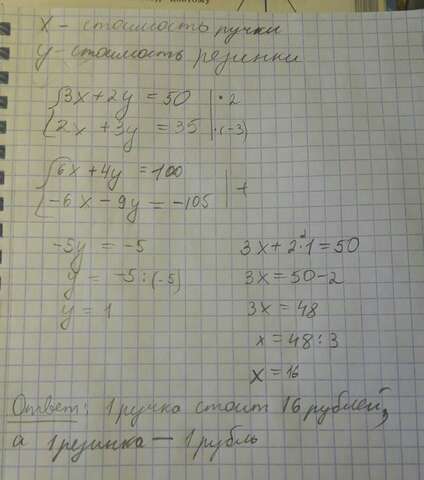 x - стоимость ручки
y - стоимость резинки
{3x + 2y = 50 | · 2
{2x + 3y = 35 | · (-3)
{6x + 4y = 100
{-6x - 9y = -105 | +
-5y = -5
y = -5 : (-5)
y = 1
3x + 2·1 = 50
3x = 50 - 2
3x = 48
x = 48 : 3
x = 16
Ответ: 1 ручка стоит 16 рублей,
а 1 резинка — 1 рубль